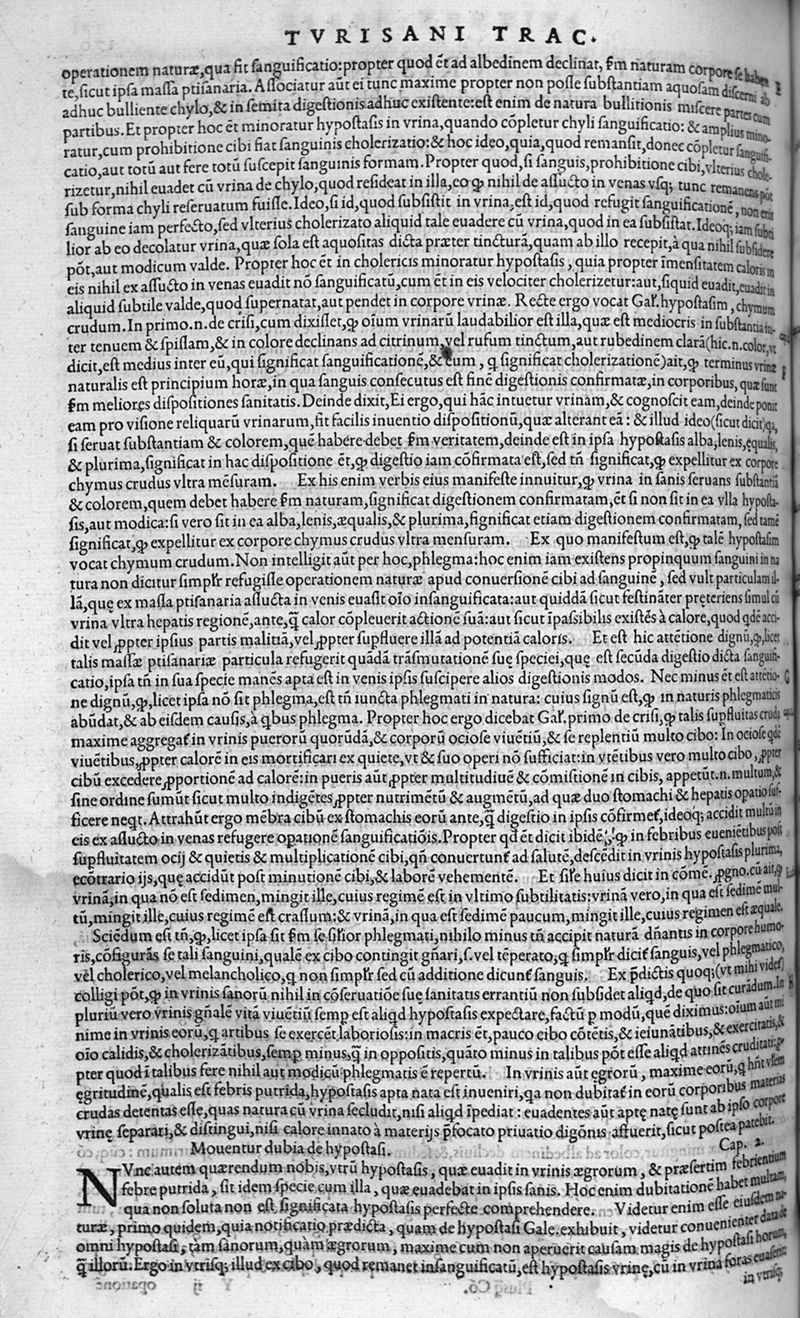 TVRISANI TRAC.
operationem naturæ,qua fit sanguificatio:propter quod ēt ad albedinem declinat, ſm naturam corpore se haben
te,sicut ipsa massa ptisanaria. Associatur aūt ei tunc maxime propter non posse substantiam aquosam discerni ab
adhuc bulliente chylo,& in semita digestionis adhuc existente:est enim de natura bullitionis miscere partes cum
partibus. Et propter hoc ēt minoratur hypostasis in vrina,quando cōpletur chyli sanguificatio: & amplius mino-
ratur,cum prohibitione cibi fiat sanguinis cholerizatio:& hoc ideo,quia,quod remansit,donec cōpletur sanguifi-
catio,aut totū aut fere totū suscepit sanguinis formam. Propter quod,si sanguis,prohibitione cibi,vlterius chole-
rizetur,nihil euadet cū vrina de chylo,quod resideat in illa,eo ꝙ nihil de assucto in venas vsq; tunc remanens pōt
sub forma chyli reseruatum fuisse. Ideo,si id,quod subsistit in vrina,est id,quod refugit sanguificationē, non erit
sanguine iam perfecto,sed vlterius cholerizato aliquid tale euadere cū vrina,quod in ea subsistat. Ideoq; iam subti
lior ab eo decolatur vrina,quæ sola est aquositas dicta præter tincturā,quam ab illo recepit,à qua nihil subsidere
pōt,aut modicum valde. Propter hoc ēt in cholericis minoratur hypostasis, quia propter īmensitatem caloris in
eis nihil ex assucto in venas euadit nō sanguificatū,cum ēt in eis velociter cholerizetur:aut,siquid euadit,euadit in
aliquid subtile valde,quod supernatat,aut pendet in corpore vrinæ. Recte ergo vocat Gal. hypostasim, chymum
crudum. In primo.n.de crisi,cum dixisset,ꝙ oīum vrinarū laudabilior est illa,quæ est mediocris in substantia in-
ter tenuem & spissam,& in colore declinans ad citrinum,vel rufum tinctum,aut rubedinem clarā(hic.n.color,vt
dicit,est medius inter eū,qui significat sanguificationē,& eum, q significat cholerizationē)ait,ꝙ terminus vrinæ
naturalis est principium horæ,in qua sanguis consecutus est finē digestionis confirmatæ,in corporibus, quæ sunt
ſm meliores dispositiones sanitatis. Deinde dixit,Ei ergo,qui hāc intuetur vrinam,& cognoscit eam,deinde ponit
eam pro visione reliquarū vrinarum,fit facilis inuentio dispositionū,quæ alterant eā: & illud ideo(sicut dicit)qa,
si seruat substantiam & colorem,quē habere debet ſm veritatem,deinde est in ipsa hypostasis alba,lenis,equalis,
& plurima,significat in hac dispositione ēt,ꝙ digestio iam cōfirmata est,sed tñ significat,ꝙ expellitur ex corpore
chymus crudus vltra mēsuram. Ex his enim verbis eius manifeste innuitur,ꝙ vrina in sanis seruans substantiā
& colorem,quem debet habere ſm naturam,significat digestionem confirmatam,ēt si non sit in ea vlla hyposta-
sis,aut modica:si vero sit in ea alba,lenis,æqualis,& plurima,significat etiam digestionem confirmatam, sed tamē
significat,ꝙ expellitur ex corpore chymus crudus vltra mensuram. Ex quo manifestum est,ꝙ talē hypostasim
vocat chymum crudum. Non intelligit aūt per hoc,phlegma:hoc enim iam existens propinquum sanguini in na
tura non dicitur simplr refugisse operationem naturæ apud conuersionē cibi ad sanguinē, sed vult particulam il-
lā,quę ex massa ptisanaria assucta in venis euasit oīo insanguificata:aut quiddā sicut festināter pręteriens simul cū
vrina vltra hepatis regionē,ante,q̄ calor cōpleuerit actionē suā:aut sicut īpassibilis existēs à calore,quod qdē acci-
dit vel ꝓpter ipsius partis malitiā,vel ꝓpter supfluere illā ad potentiā caloris. Et est hic attētione dignū,ꝙ,licet
talis massæ ptisanariæ particula refugerit quādā trāsmutationē suę speciei,quę est secūda digestio dicta sanguifi-
catio,ipsa tñ in sua specie manēs apta est in venis ipsis suscipere alios digestionis modos. Nec minus ēt est attētio-
ne dignū,ꝙ,licet ipsa nō sit phlegma,est tñ iuncta phlegmati in natura: cuius signū est,ꝙ in naturis phlegmaticis
abūdat,& ab eisdem causis,à qbus phlegma. Propter hoc ergo dicebat Gal. primo de crisi,ꝙ talis supfluitas cruda
maxime aggregat in vrinis puerorū quorūdā,& corporū ociose viuētiū,& se replentiū multo cibo: In ociose qdē
viuētibus,ꝓpter calorē in eis mortificari ex quiete,vt & suo operi nō sufficiat:in vtētibus vero multo cibo, ꝓpter
cibū excedere ꝓportionē ad calorē:in pueris aūt ꝓpter multitudinē & cōmistionē in cibis, appetūt.n.multum,&
sine ordine sumūt sicut multo indigētes ꝓpter nutrimētū & augmētū,ad quæ duo stomachi & hepatis opatio suf-
ficere neqt. Attrahūt ergo mēbra cibū ex stomachis eorū ante,q̄ digestio in ipsis cōfirmet,ideoq; accidit multum in
eis ex assucto in venas refugere opationē sanguificatiōis. Propter qd ēt dicit ibidē, ꝙ in febribus euenietibus post
supfluitatem ocij & quietis & multiplicationē cibi,qñ conuertunt ad salutē,descēdit in vrinis hypostasis plurima,
ecōtrario ijs,quę accidūt post minutionē cibi,& laborē vehementē. Et silr huius dicit in cōmē. ꝓgno.cū ait,ꝙ
vrinā,in qua nō est sedimen,mingit ille,cuius regimē est in vltimo subtilitatis:vrinā vero,in qua est sedimē mul-
tū,mingit ille,cuius regimē est crassum:& vrinā,in qua est sedimē paucum,mingit ille,cuius regimen est æquale.
Sciēdum est tñ,ꝙ,licet ipsa sit ſm se silior phlegmati,nihilo minus tñ accipit naturā dñantis in corpore humo-
ris,cōfigurās se tali sanguini,qualē ex cibo contingit gñari,s.vel tēperato,q simplr dicit sanguis,vel phlegmatico,
vel cholerico,vel melancholico,q non simplr sed cū additione dicunt sanguis. Ex p̄dictis quoq;(vt mihi videt)
colligi pōt,ꝙ in vrinis sanorū nihil in cōseruatiōe suę sanitatis errantiū non subsidet aliqd,de quo sit curādum. In
pluriū vero vrinis gñalē vitā viuētiū semp est aliqd hypostasis expectare,factū p modū,quē diximus:oīum aut mi
nime in vrinis eorū,q artibus se exercēt laboriosis:in macris ēt,pauco cibo cōtētis,& ieiunātibus,& exercitatis,&
oīo calidis,& cholerizātibus,semp minus,q̄ in oppositis,quāto minus in talibus pōt esse aliqd attinēs cruditati:p̄
pter quod ī talibus fere nihil aut modicū phlegmatis ē repertū. In vrinis aūt ęgrorū, maxime eorū,q hñt vlem
ęgritudinē,qualis est febris putrida,hypostasis apta nata est inueniri,qa non dubitat in eorū corporibus materias
crudas detentas esse,quas natura cū vrina secludit,nisi aliqd īpediat: euadentes aūt aptę natę sunt ab ipso corpore
vrinę separari,& distingui,nisi calore innato à materijs p̄focato priuatio digōnis affuerit,sicut postea patebit.
Mouentur dubia de hypostasi. Cap. 2.
NVnc autem quærendum nobis,vtrū hypostasis, quæ euadit in vrinis ægrorum, & præsertim febrientium
febre putrida, sit idem specie cum illa, quæ euadebat in ipsis sanis. Hoc enim dubitationē habet multam,
qua non soluta non est significata hypostasis perfecte comprehendere. Videtur enim esse eiusdem na-
turæ, primo quidem,quia notificatio prædicta, quam de hypostasi Gale.exhibuit, videtur conuenienter danda de
omni hypostasi, tàm sanorum,quàm ægrorum, maxime cum non aperuerit causam magis de hypostasi horum,
q̄ illorū. Ergo in vtrisq; illud ex cibo, quod remanet insanguificatū,est hypostasis vrinę,cū in vrina foras euaserit
Plusq̄ Cō. in vtrisq;